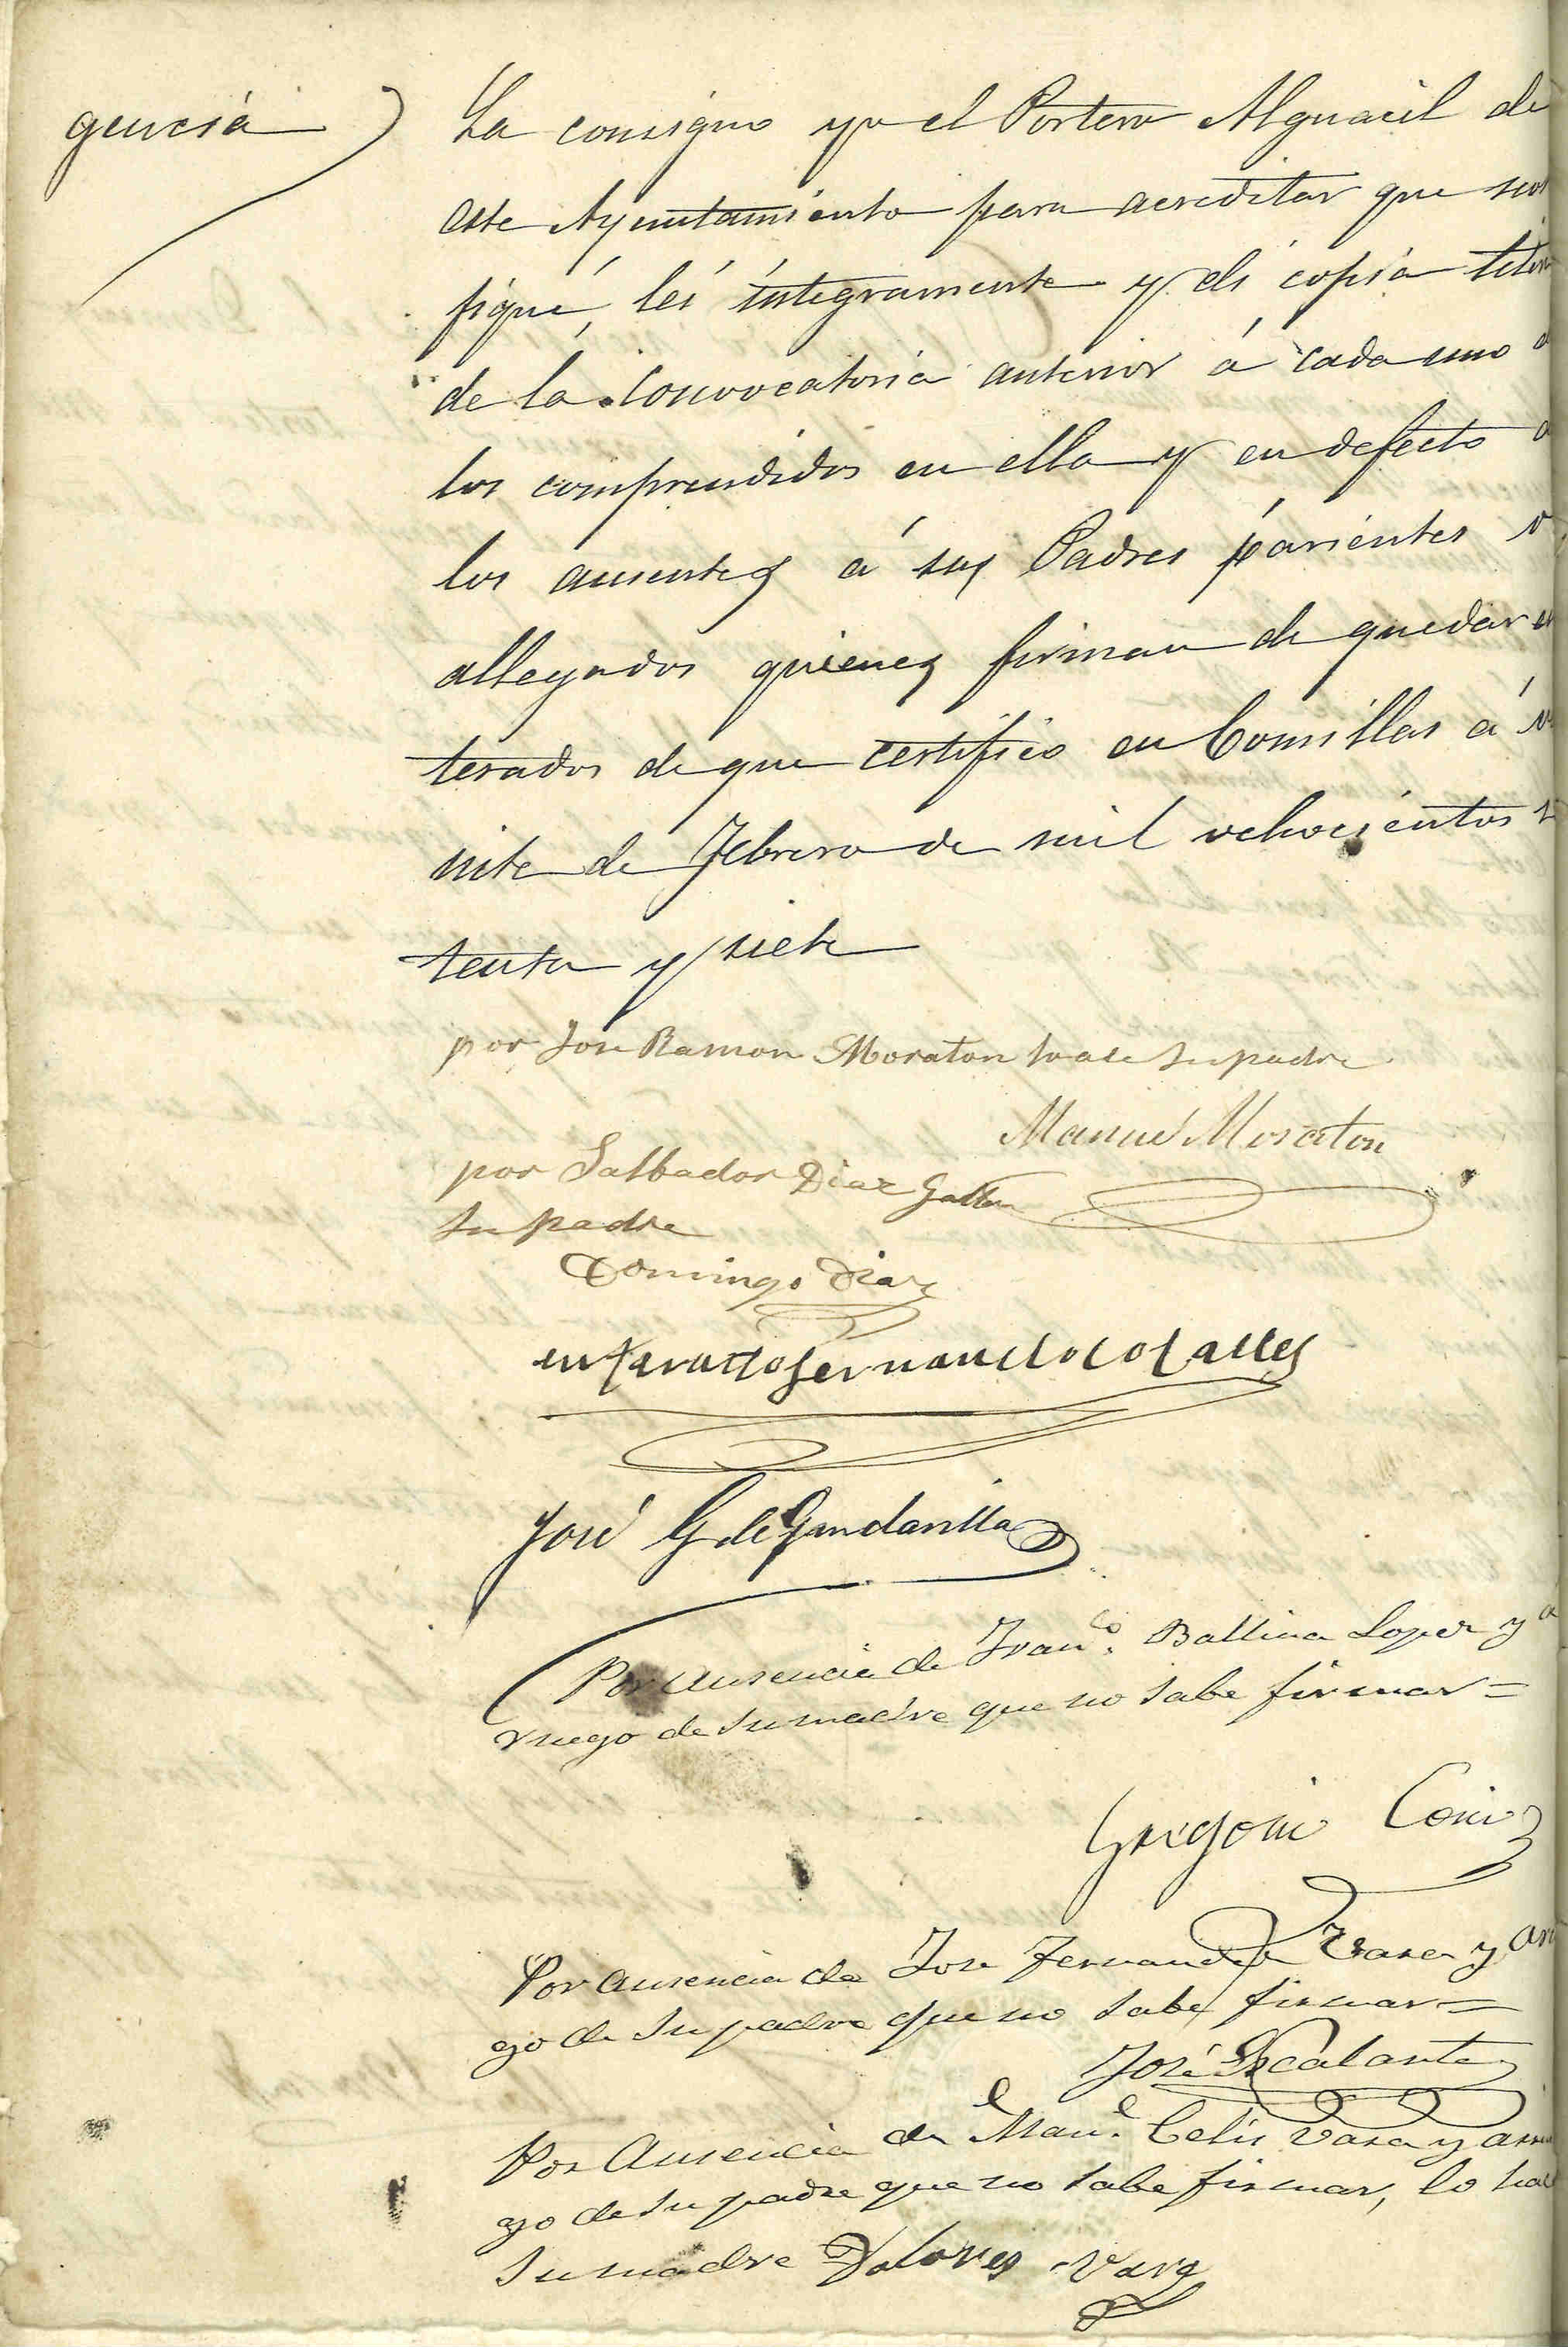 gencia
La consigno yo el Portero Alguacil de
este Ayuntamiento para acreditar que no
fiqué, leí íntegramente y di copia
de la Convocatoria anterior á cada uno
los comprendidos en ella y en defecto
los ausentes á sus Padres parientes
allegados quienes firman de quedar en
terados de que certifico en Comillas á
inte de Febrero de mil ochocientos
tenta y siete
por Jose Ramon Moraton lo ase su padre
Manuel Moraton
por Salbador Diaz
su padre
Domingo Diaz
José G de Gandarilla
Por ausencia de Fran.co Ballina Lopez y a
ruego de su madre que no sabe firmar =
Gregorio
Por ausencia de Jose Fernandez Vara y
go de su padre que no sabe firmar =
José Escalante
Por Ausencia de Man.l Celis Vara y
go de su padre que no sabe firmar, lo
su madre Dolores Vara